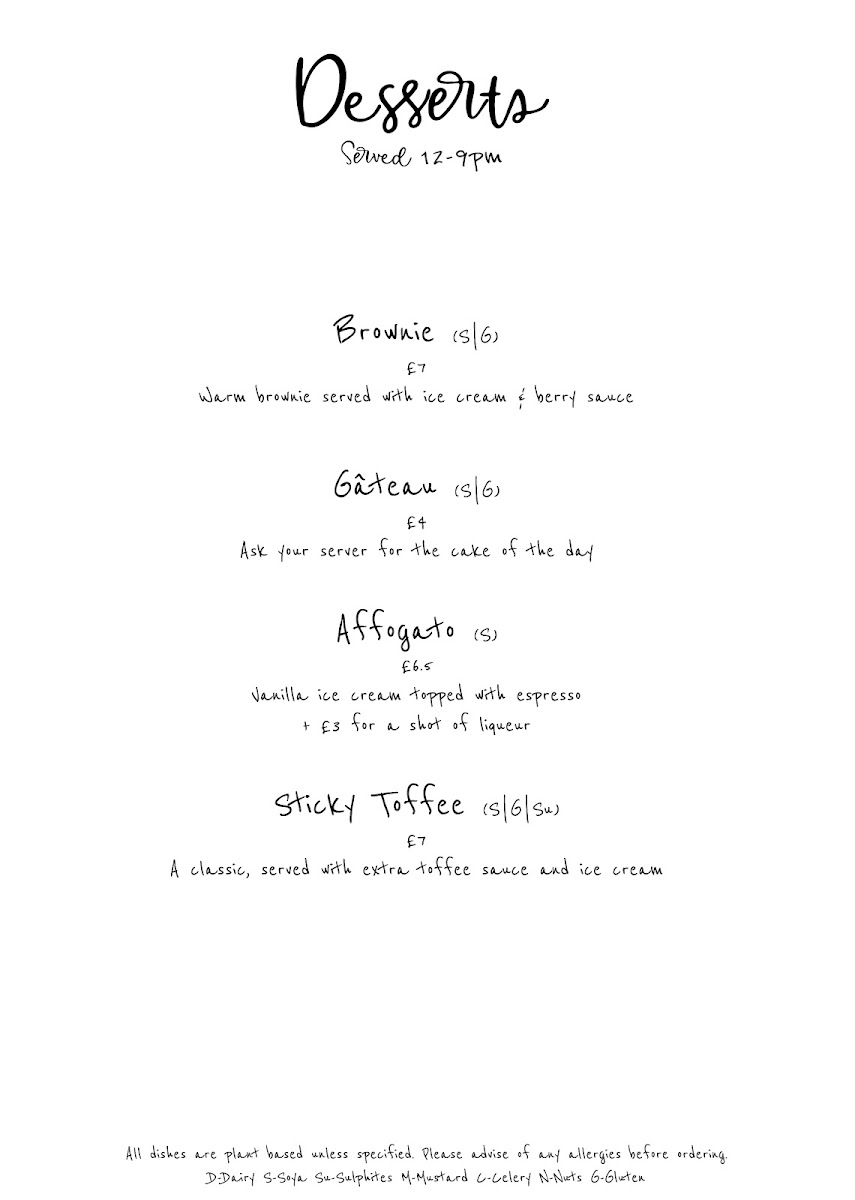 Desserts
Served 12-9pm
Brownie (S|G)
£7
Warm brownie served with ice cream & berry sauce
Gâteau (S|G)
£4
Ask your server for the cake of the day
Affogato (S)
£6.5
Vanilla ice cream topped with espresso
+ £3 for a shot of liqueur
Sticky Toffee (S|G|Su)
£7
A classic, served with extra toffee sauce and ice cream
All dishes are plant based unless specified. Please advise of any allergies before ordering.
D-Dairy S-Soya Su-Sulphites M-Mustard C-Celery N-Nuts G-Gluten